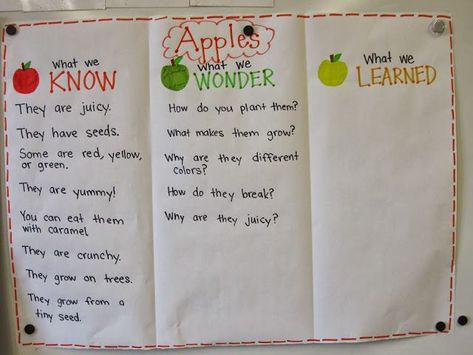 Apples
What we
KNOW
They are juicy.
They have seeds.
Some are red, yellow,
or green.
They are yummy!
You can eat them
with caramel
They are crunchy.
They grow on trees.
They grow from a
tiny seed.
What we
WONDER
How do you plant them?
What makes them grow?
Why are they different
colors?
How do they break?
Why are they juicy?
What we
LEARNED